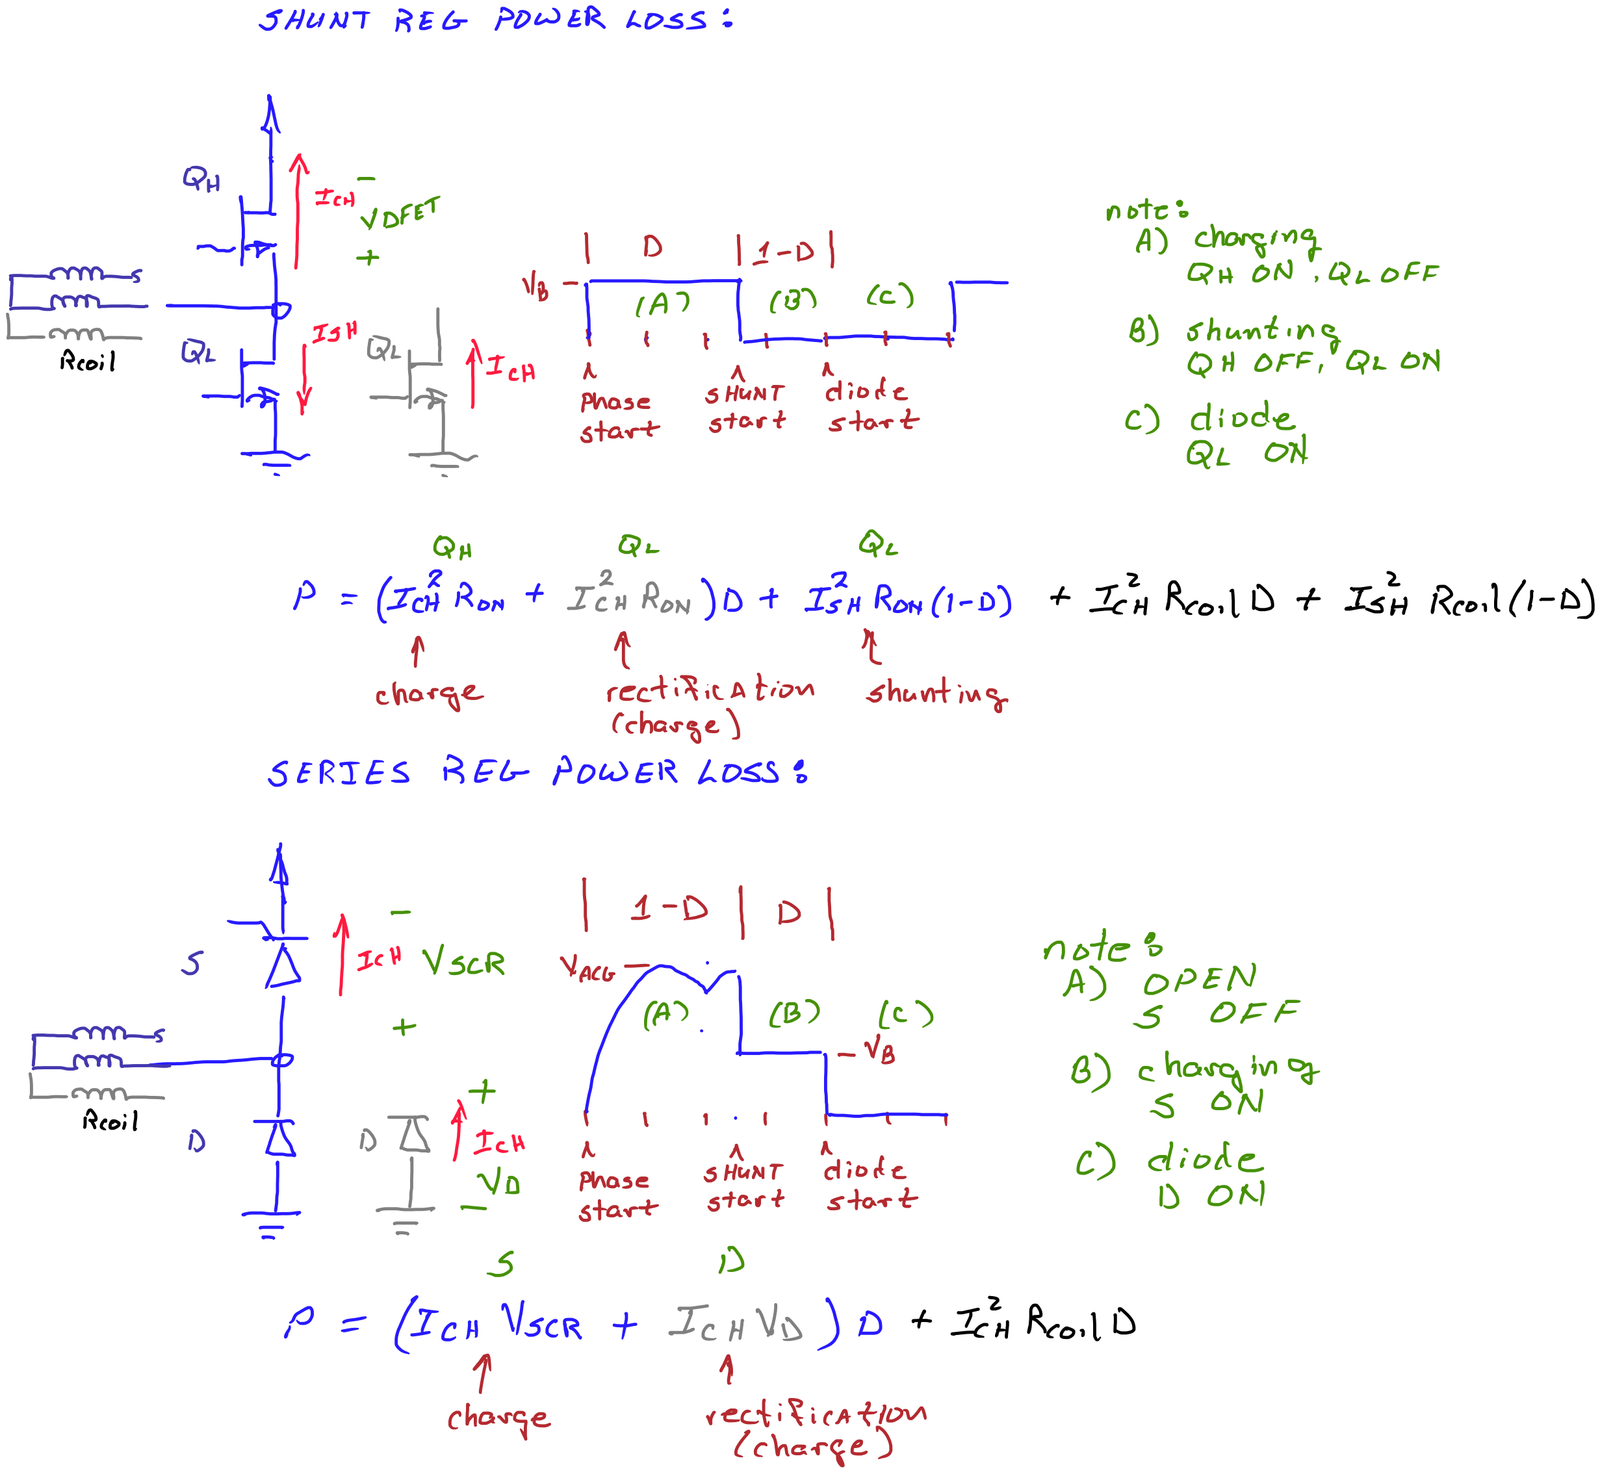 SHUNT REG POWER LOSS:
QH
ICH
-
VDFET
+
Rcoil
QL
ISH
QL
ICH
| D | 1-D |
VB
(A) (B) (C)
Phase start
SHUNT start
diode start
note:
A) charging
QH ON, QL OFF
B) shunting
QH OFF, QL ON
C) diode
QL ON
QH QL QL
P = (ICH² RON + ICH² RON) D + ISH² RON (1-D) + ICH² Rcoil D + ISH² Rcoil (1-D)
charge
rectification
(charge)
shunting
SERIES REG POWER LOSS:
S
ICH
-
VSCR
+
Rcoil
D
D
+
ICH
VD
-
| 1-D | D |
VACG
(A) (B) (C)
VB
Phase start
SHUNT start
diode start
note:
A) OPEN
S OFF
B) charging
S ON
C) diode
D ON
S D
P = (ICH VSCR + ICH VD) D + ICH² Rcoil D
charge
rectification
(charge)